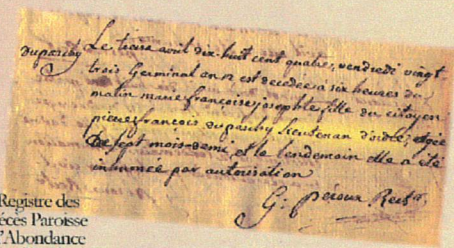 Duparchy
Le treize avril dix-huit cent quatre, vendredi vingt
trois Germinal an 12, est decedée a six heures du
matin marie françoise josephte fille du citoyen
pierre françois duparchy lieutenan d'ordre, agée
de sept mois-demi et le lendemain elle a été
inhumée par autorisation
G: Recter
Registre des
écès Paroisse
'Abondance